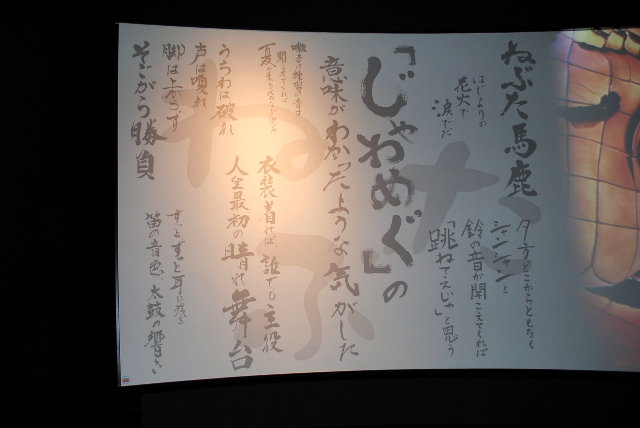 ねぶた馬鹿
夕方どこからともなく
シャンシャンと
鈴の音が聞こえてくれば
「跳ねてえじゃ」と思う
はじまりが
花火で
涙でだ
「じゃわめぐ」の
意味がわかったような気がした
囃子の練習の音コ
聞こえてくれば
衣装着れば、誰でも主役
人生最初の晴れ舞台
うちわは破れ
声は嗄れ
脚は上がらず
そごがら勝負
ずっとずっと耳に残る
笛の音色、太鼓の響き
ねぶた